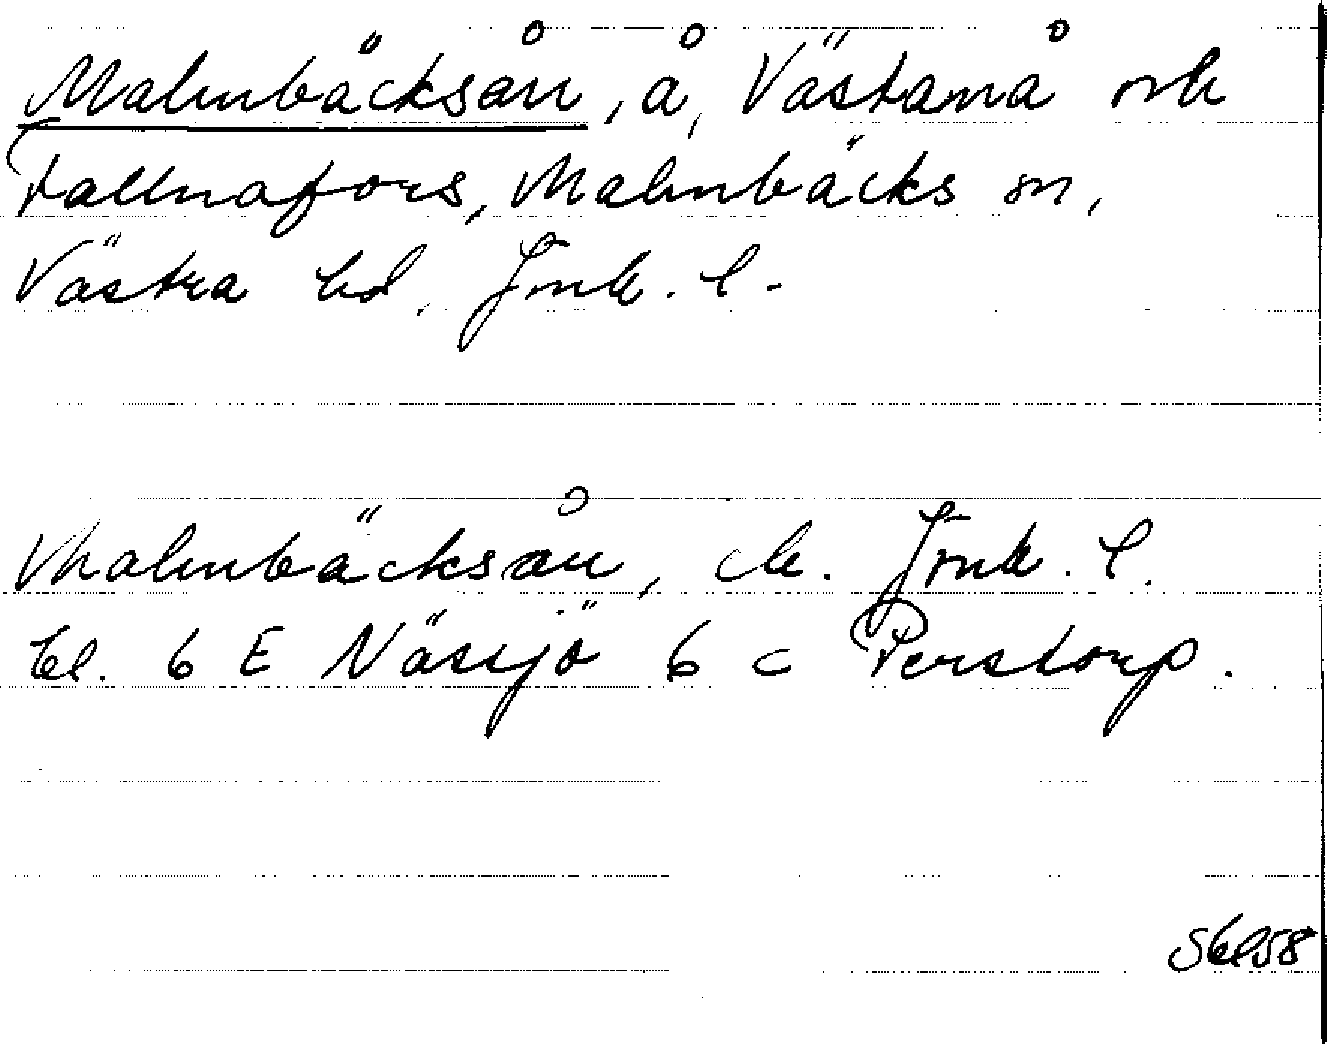 Malmbäcksån, å, Västanå och
Fallnafors, Malmbäcks sn,
Västra hd, Jönk. l.
Malmbäcksån, ek. Jönk. l.
bl. 6 E Nässjö 6 c Perstorp.